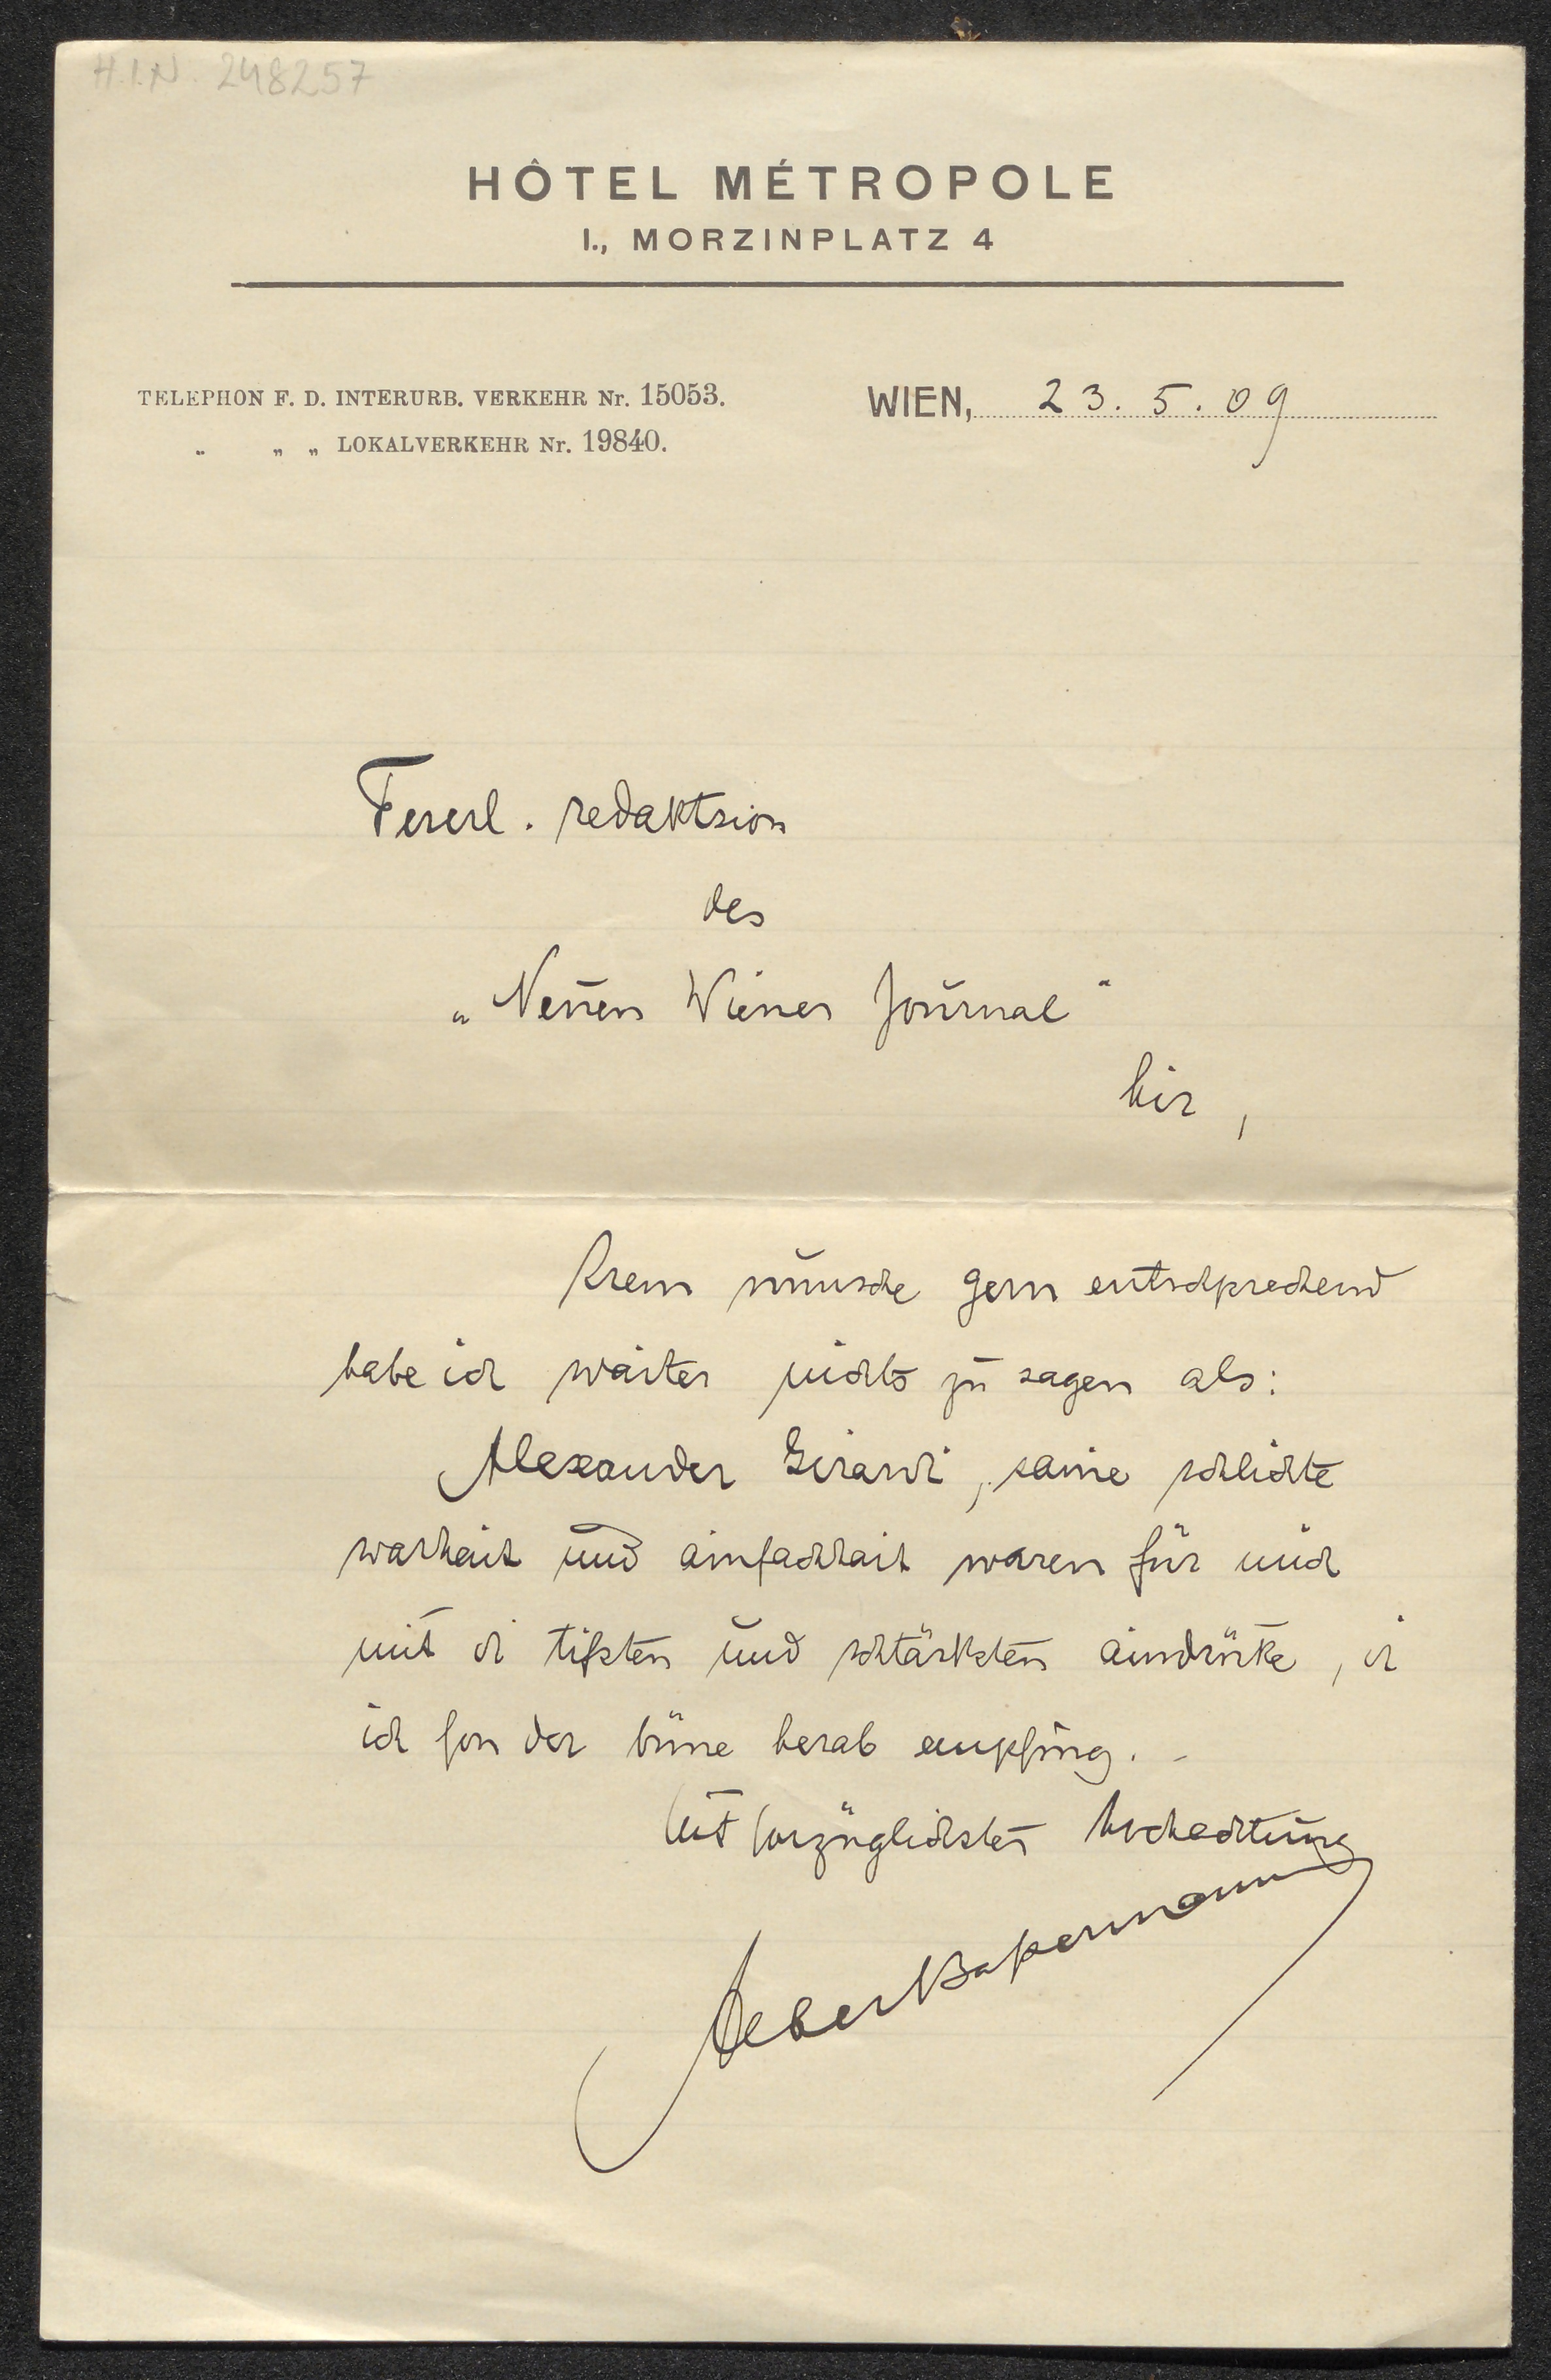 H.I.N. 248257
HÔTEL MÉTROPOLE
I., MORZINPLATZ 4
TELEPHON F. D. INTERURB. VERKEHR Nr. 15053.
„ „ „ LOKALVERKEHR Nr. 19840.
WIEN, 23. 5. 09
Fererl. redaktsion
des
„Neuen Wiener Journal"
hir,
Irem wunsche gern entschprechend
habe ich waiter nichts zu sagen als:
Alexander Girardi, saine schlichte
warhait und ainfachhait waren für mich
mit di tifsten und schtärksten aindrüke, di
ich fon der büne herab empfing. -
Mit forzüglichster hochachtung